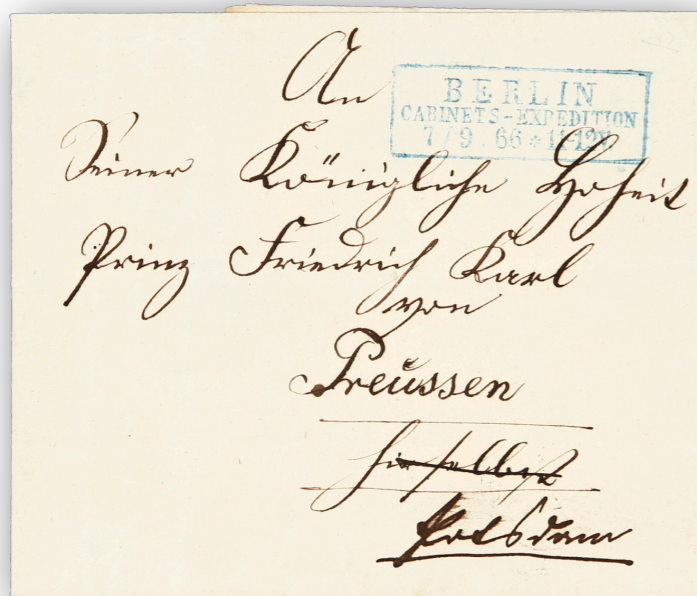 An
BERLIN
CABINETS-EXPEDITION
7/9.66*11-12V.
Seiner Königliche Hoheit
Prinz Friedrich Karl
von
Preussen
hierselbst
Potsdam